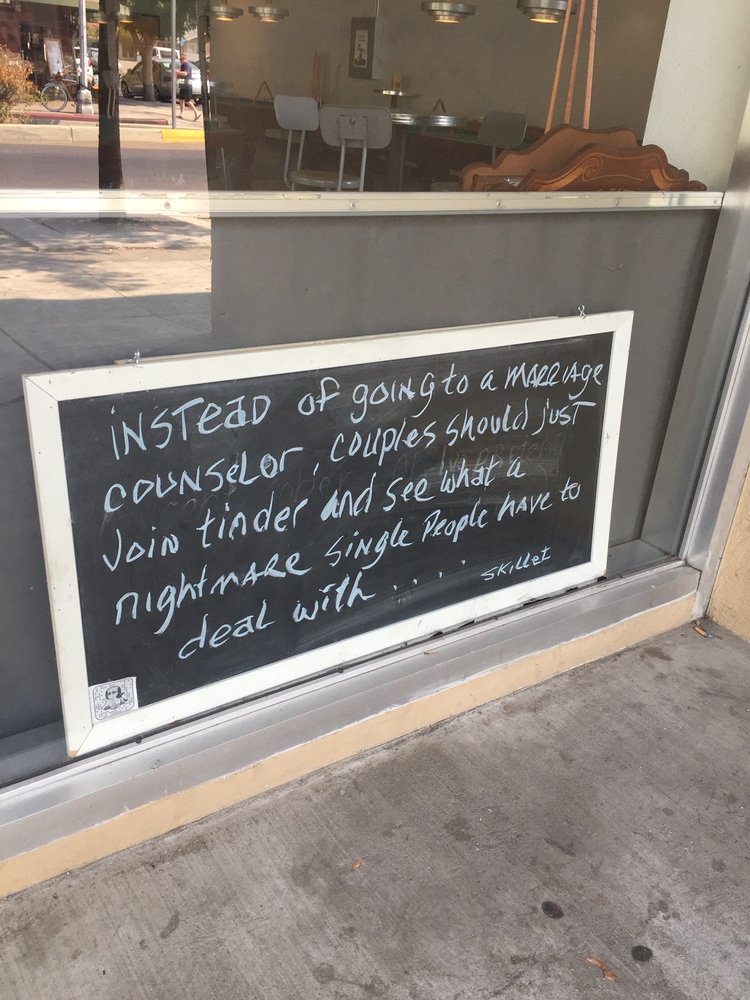 iNSTEaD of going to a MARRiAge
COUNSeLor, couples should just
Join tinder and see what a
nightMARe single People have to
deal with . . . .
SKiLLet